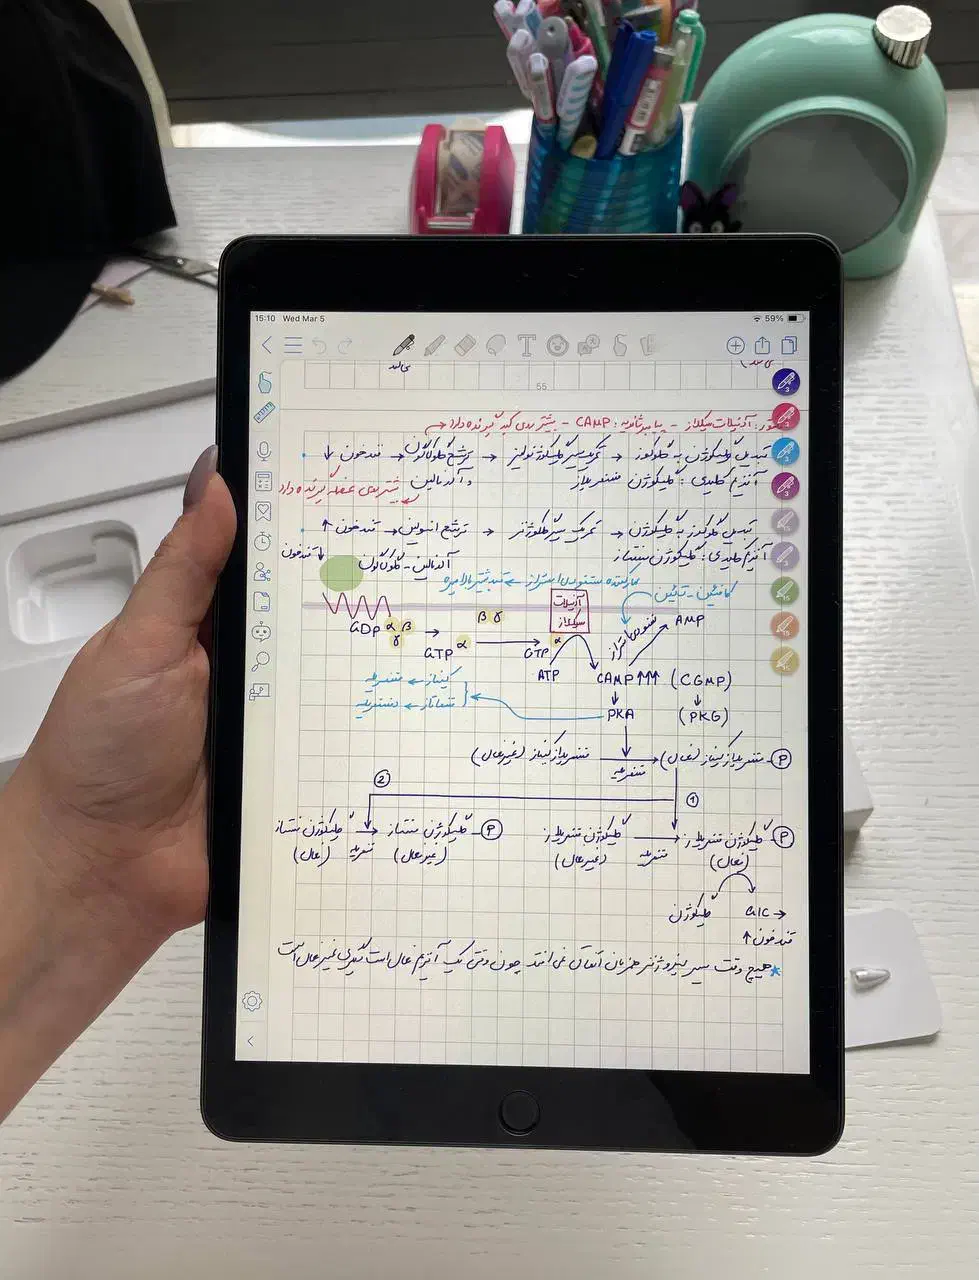 15:10 Wed Mar 5 59%
می‌کند
55
آدنیلات سیکلاز - پیامبر ثانویه: CAMP - بیشتر روی کبد گیرنده دارد →
قند خون ↓ → ترشح گلوکاگون و آدرنالین → تحریک مسیر گلیکوژنولیز → تبدیل گلیکوژن به گلوکز
آنزیم کلیدی: گلیکوژن فسفریلاز
بیشتر روی عضله گیرنده دارد
قند خون ↑ → ترشح انسولین → تحریک مسیر گلیکوژنز → تبدیل گلوکز به گلیکوژن
آنزیم کلیدی: گلیکوژن سنتتاز
آدرنالین - گلوکاگون
قند خون ↓
کافئین - تائین
آدنیلات سیکلاز
فسفودی استراز
AMP
GDP α β γ → GTP α β γ → GTP α
ATP CAMP ↑↑↑ (CGMP)
کیناز → فسفریله
فسفاتاز → دفسفریله
PKA (PKG)
فسفریلاز کیناز (غیرفعال) → فسفریله فسفریلاز کیناز (فعال) - P
② ①
گلیکوژن سنتتاز (فعال) → فسفریله گلیکوژن سنتتاز (غیرفعال) - P
گلیکوژن فسفریلاز (غیرفعال) → فسفریله گلیکوژن فسفریلاز (فعال) - P
گلیکوژن GlC →
قند خون ↑
* هیچ وقت مسیر لیز و ژنز همزمان اتفاق نمی افتد چون وقتی یک آنزیم فعال است دیگری غیرفعال است